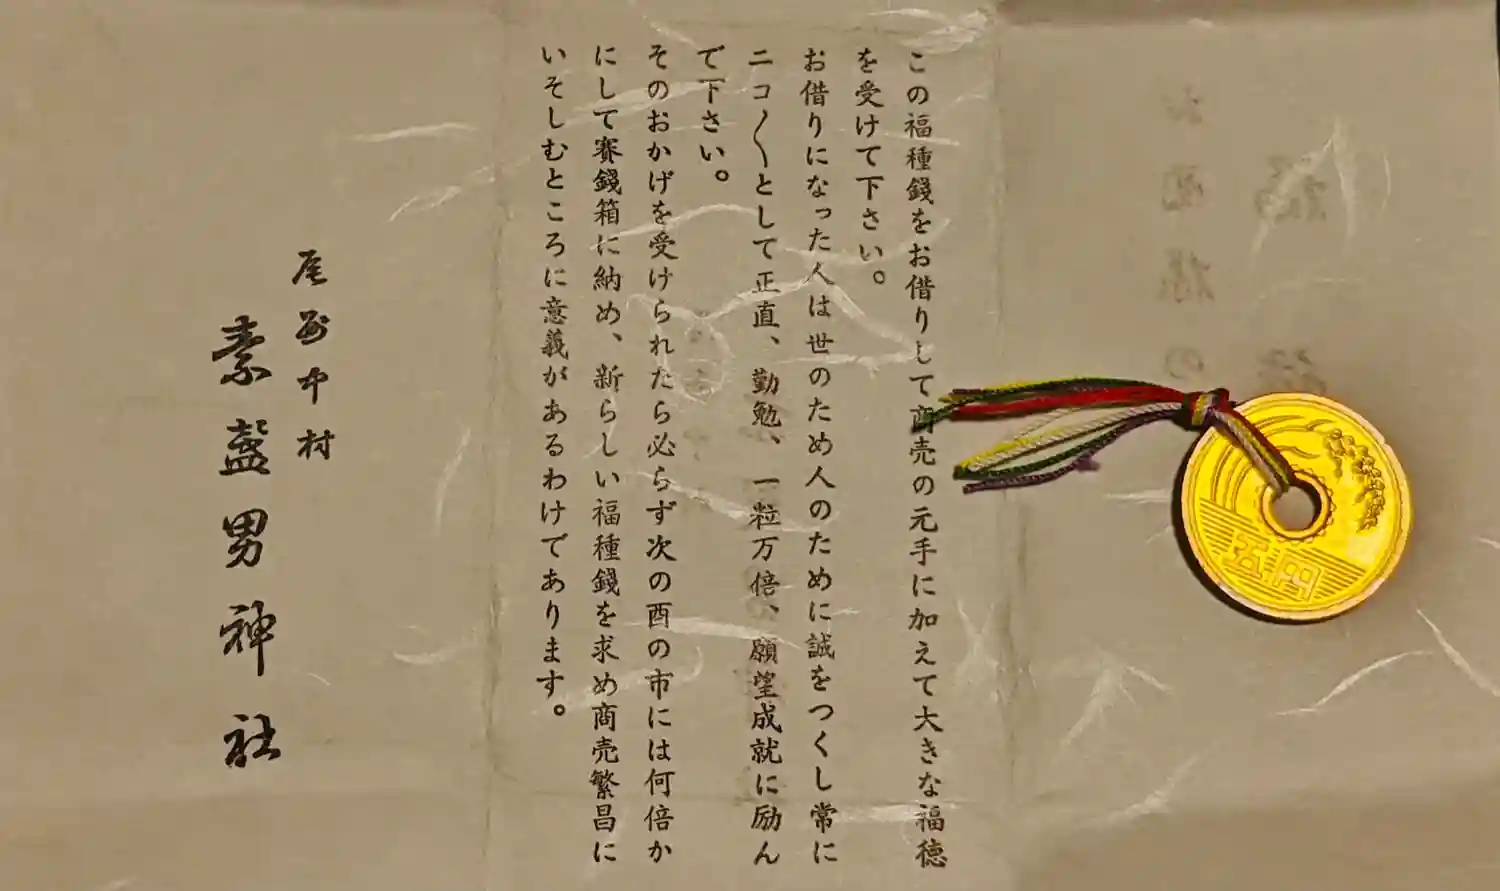 この福種錢をお借りして商売の元手に加えて大きな福徳
を受けて下さい。
お借りになった人は世のため人のために誠をつくし常に
ニコ〳〵として正直、勤勉、一粒万倍、願望成就に励ん
で下さい。
そのおかげを受けられたら必らず次の酉の市には何倍か
にして賽錢箱に納め、新らしい福種錢を求め商売繁昌に
いそしむところに意義があるわけであります。
尾州中村
素盞男神社
五円